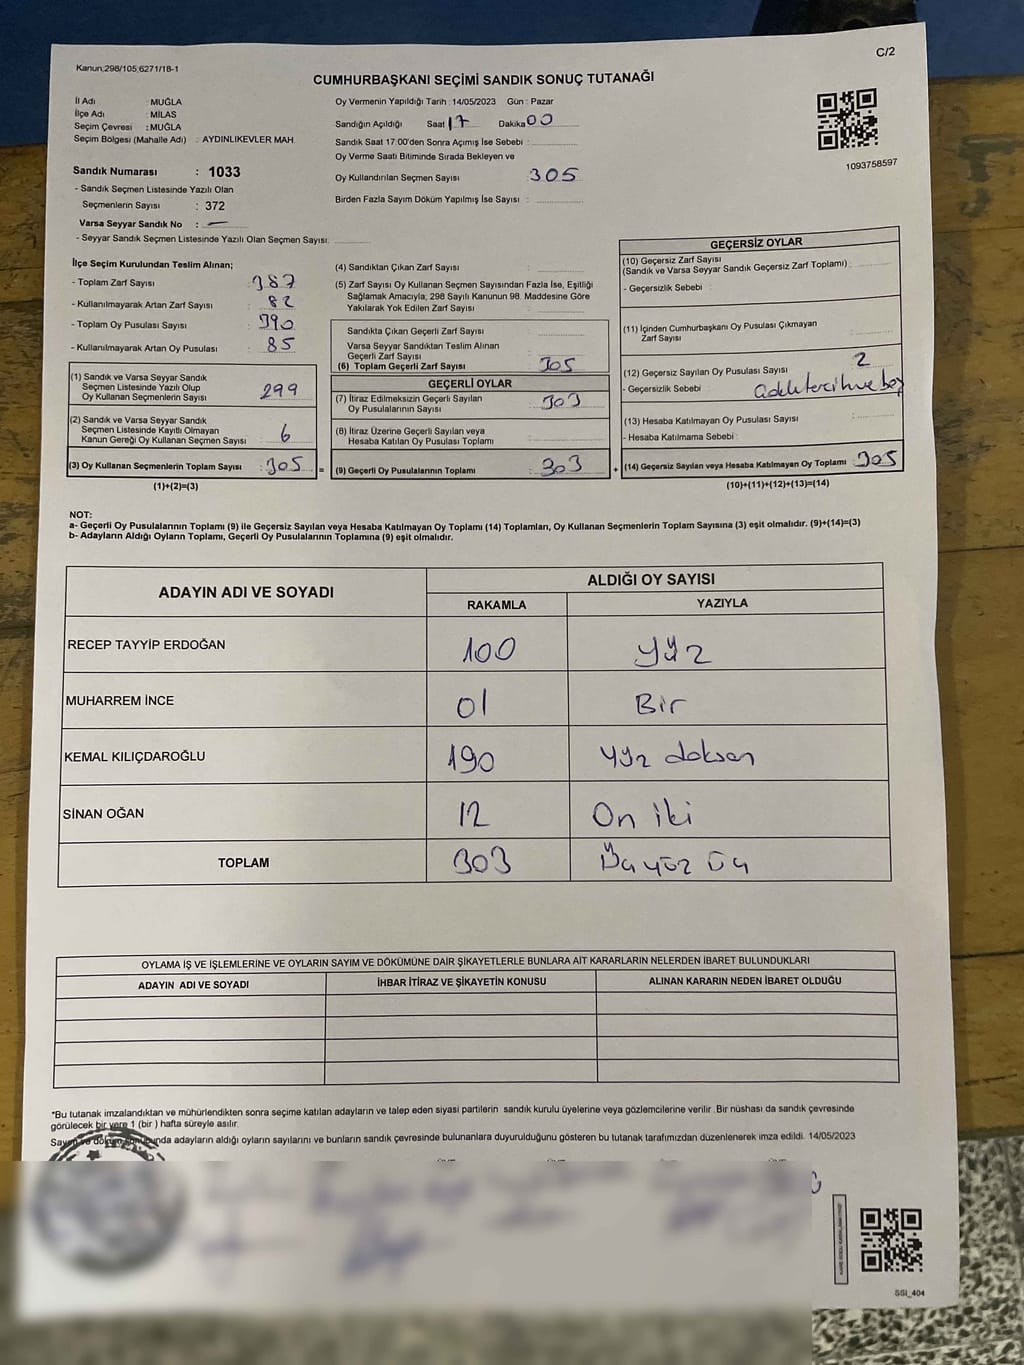 C/2
Kanun;298/105;6271/18-1
CUMHURBAŞKANI SEÇİMİ SANDIK SONUÇ TUTANAĞI
İl Adı : MUĞLA
İlçe Adı : MİLAS
Seçim Çevresi : MUĞLA
Seçim Bölgesi (Mahalle Adı) : AYDINLIKEVLER MAH.
Sandık Numarası : 1033
- Sandık Seçmen Listesinde Yazılı Olan
Seçmenlerin Sayısı : 372
Varsa Seyyar Sandık No : —
- Seyyar Sandık Seçmen Listesinde Yazılı Olan Seçmen Sayısı:
Oy Vermenin Yapıldığı Tarih : 14/05/2023 Gün : Pazar
Sandığın Açıldığı Saat 17 Dakika 00
Sandık Saat 17:00'den Sonra Açımış İse Sebebi :
Oy Verme Saati Bitiminde Sırada Bekleyen ve
Oy Kullandırılan Seçmen Sayısı : 305
Birden Fazla Sayım Döküm Yapılmış İse Sayısı :
1093758597
İlçe Seçim Kurulundan Teslim Alınan;
- Toplam Zarf Sayısı : 387
- Kullanılmayarak Artan Zarf Sayısı : 82
- Toplam Oy Pusulası Sayısı : 390
- Kullanılmayarak Artan Oy Pusulası : 85
(1) Sandık ve Varsa Seyyar Sandık
Seçmen Listesinde Yazılı Olup
Oy Kullanan Seçmenlerin Sayısı : 299
(2) Sandık ve Varsa Seyyar Sandık
Seçmen Listesinde Kayıtlı Olmayan
Kanun Gereği Oy Kullanan Seçmen Sayısı : 6
(3) Oy Kullanan Seçmenlerin Toplam Sayısı : 305 =
(1)+(2)=(3)
(4) Sandıktan Çıkan Zarf Sayısı :
(5) Zarf Sayısı Oy Kullanan Seçmen Sayısından Fazla İse, Eşitliği
Sağlamak Amacıyla, 298 Sayılı Kanunun 98. Maddesine Göre
Yakılarak Yok Edilen Zarf Sayısı :
Sandıkta Çıkan Geçerli Zarf Sayısı :
Varsa Seyyar Sandıktan Teslim Alınan
Geçerli Zarf Sayısı :
(6) Toplam Geçerli Zarf Sayısı : 305
GEÇERLİ OYLAR
(7) İtiraz Edilmeksizin Geçerli Sayılan
Oy Pusulalarının Sayısı : 303
(8) İtiraz Üzerine Geçerli Sayılan veya
Hesaba Katılan Oy Pusulası Toplamı :
(9) Geçerli Oy Pusulalarının Toplamı : 303 +
GEÇERSİZ OYLAR
(10) Geçersiz Zarf Sayısı
(Sandık ve Varsa Seyyar Sandık Geçersiz Zarf Toplamı) :
- Geçersizlik Sebebi :
(11) İçinden Cumhurbaşkanı Oy Pusulası Çıkmayan
Zarf Sayısı :
(12) Geçersiz Sayılan Oy Pusulası Sayısı : 2
- Geçersizlik Sebebi :
(13) Hesaba Katılmayan Oy Pusulası Sayısı :
- Hesaba Katılmama Sebebi :
(14) Geçersiz Sayılan veya Hesaba Katılmayan Oy Toplamı : 305
(10)+(11)+(12)+(13)=(14)
NOT:
a- Geçerli Oy Pusulalarının Toplamı (9) ile Geçersiz Sayılan veya Hesaba Katılmayan Oy Toplamı (14) Toplamları, Oy Kullanan Seçmenlerin Toplam Sayısına (3) eşit olmalıdır. (9)+(14)=(3)
b- Adayların Aldığı Oyların Toplamı, Geçerli Oy Pusulalarının Toplamına (9) eşit olmalıdır.
ADAYIN ADI VE SOYADI ALDIĞI OY SAYISI
RAKAMLA YAZIYLA
RECEP TAYYİP ERDOĞAN 100 yüz
MUHARREM İNCE 01 Bir
KEMAL KILIÇDAROĞLU 190 yüz doksan
SİNAN OĞAN 12 On iki
TOPLAM 303 Üç yüz üç
OYLAMA İŞ VE İŞLEMLERİNE VE OYLARIN SAYIM VE DÖKÜMÜNE DAİR ŞİKAYETLERLE BUNLARA AİT KARARLARIN NELERDEN İBARET BULUNDUKLARI
ADAYIN ADI VE SOYADI İHBAR İTİRAZ VE ŞİKAYETİN KONUSU ALINAN KARARIN NEDEN İBARET OLDUĞU
*Bu tutanak imzalandıktan ve mühürlendikten sonra seçime katılan adayların ve talep eden siyasi partilerin sandık kurulu üyelerine veya gözlemcilerine verilir. Bir nüshası da sandık çevresinde
görülecek bir yere 1 (bir ) hafta süreyle asılır.
Sayım ve döküm sonucunda adayların aldığı oyların sayılarını ve bunların sandık çevresinde bulunanlara duyurulduğunu gösteren bu tutanak tarafımızdan düzenlenerek imza edildi. 14/05/2023
SSI_404